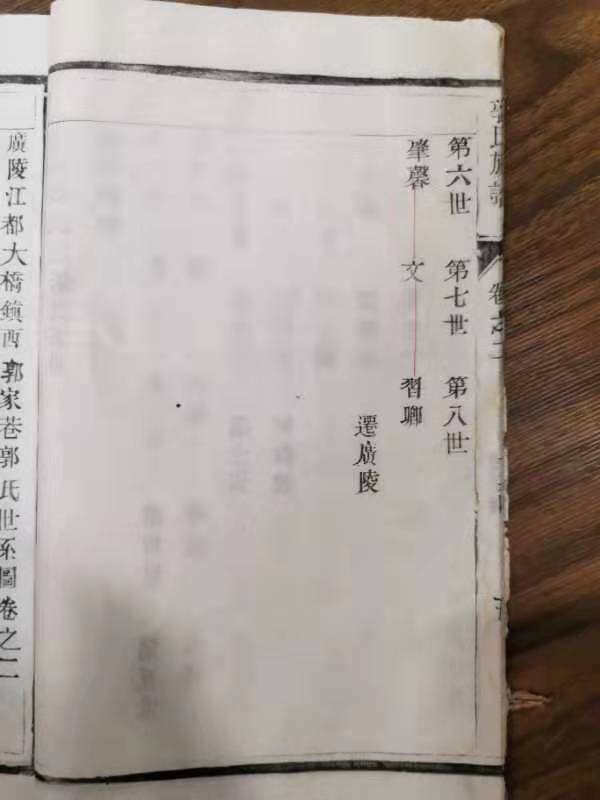 郭氏族譜
卷之二
第六世 第七世 第八世
肇馨 文 習卿
遷廣陵
廣陵江都大橋鎮西郭家巷郭氏世系圖卷之二